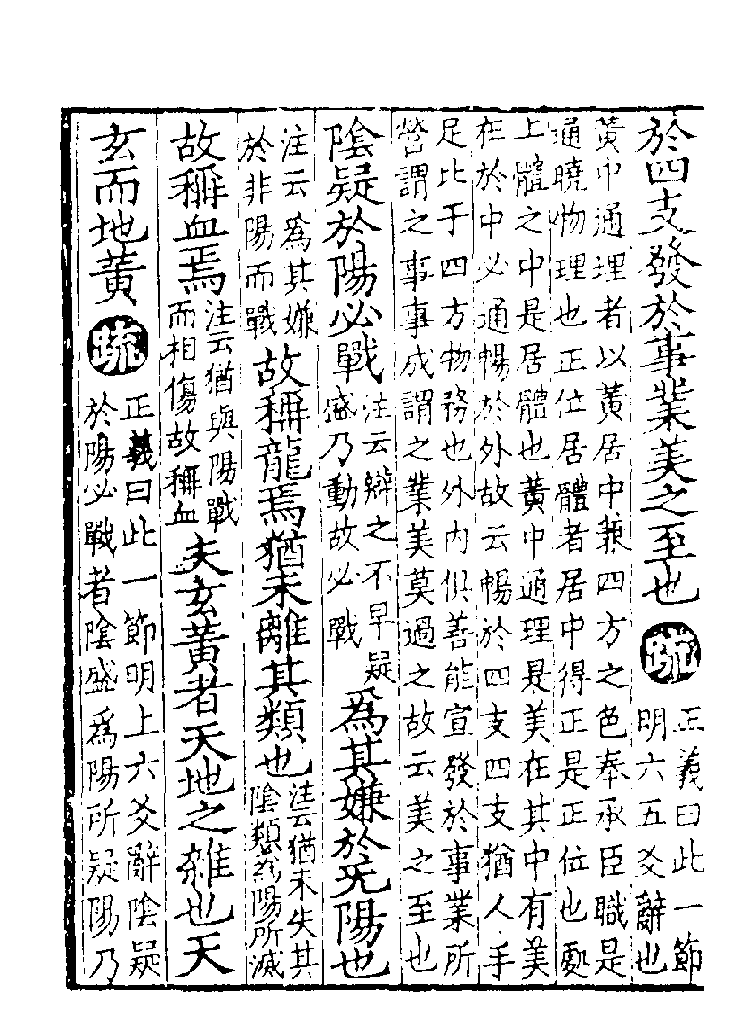 於四支發於事業美之至也疏正義曰此一節
明六五爻辭也
黃中通理者以黃居中兼四方之色奉承臣職是
通曉物理也正位居體者居中得正是正位也處
上體之中是居體也黃中通理是美在其中有美
在於中必通暢於外故云暢於四支四支猶人手
足比于四方物務也外內俱善能宣發於事業所
營謂之事事成謂之業美莫過之故云美之至也
陰疑於陽必戰注云辯之不早疑盛乃動故必戰爲其嫌於无陽也
注云爲其嫌於非陽而戰故稱龍焉猶未離其類也注云猶未失其陰類爲陽所滅
故稱血焉注云猶與陽戰而相傷故稱血夫玄黃者天地之雜也天
玄而地黃疏正義曰此一節明上六爻辭陰疑
於陽必戰者陰盛爲陽所疑陽乃